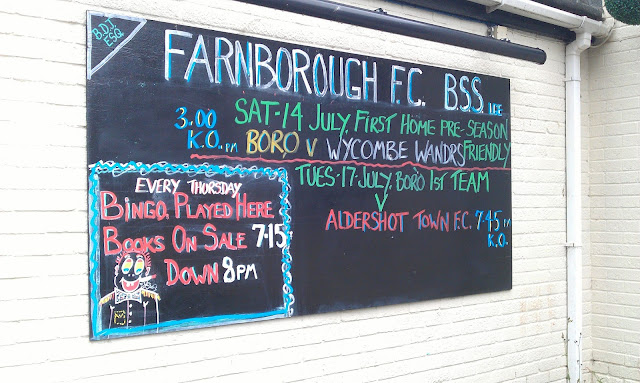 B.D.J.
ESQ.
FARNBOROUGH F.C. B.S.S. LGE
SAT-14 JULY. FIRST HOME PRE-SEASON
3.00 K.O. PM BORO V WYCOMBE WANDRS FRIENDLY
TUES-17-JULY. BORO 1ST TEAM
V
ALDERSHOT TOWN F.C. 7.45 PM
K.O.
EVERY THURSDAY
BINGO. PLAYED HERE
BOOKS ON SALE 7.15
DOWN 8PM